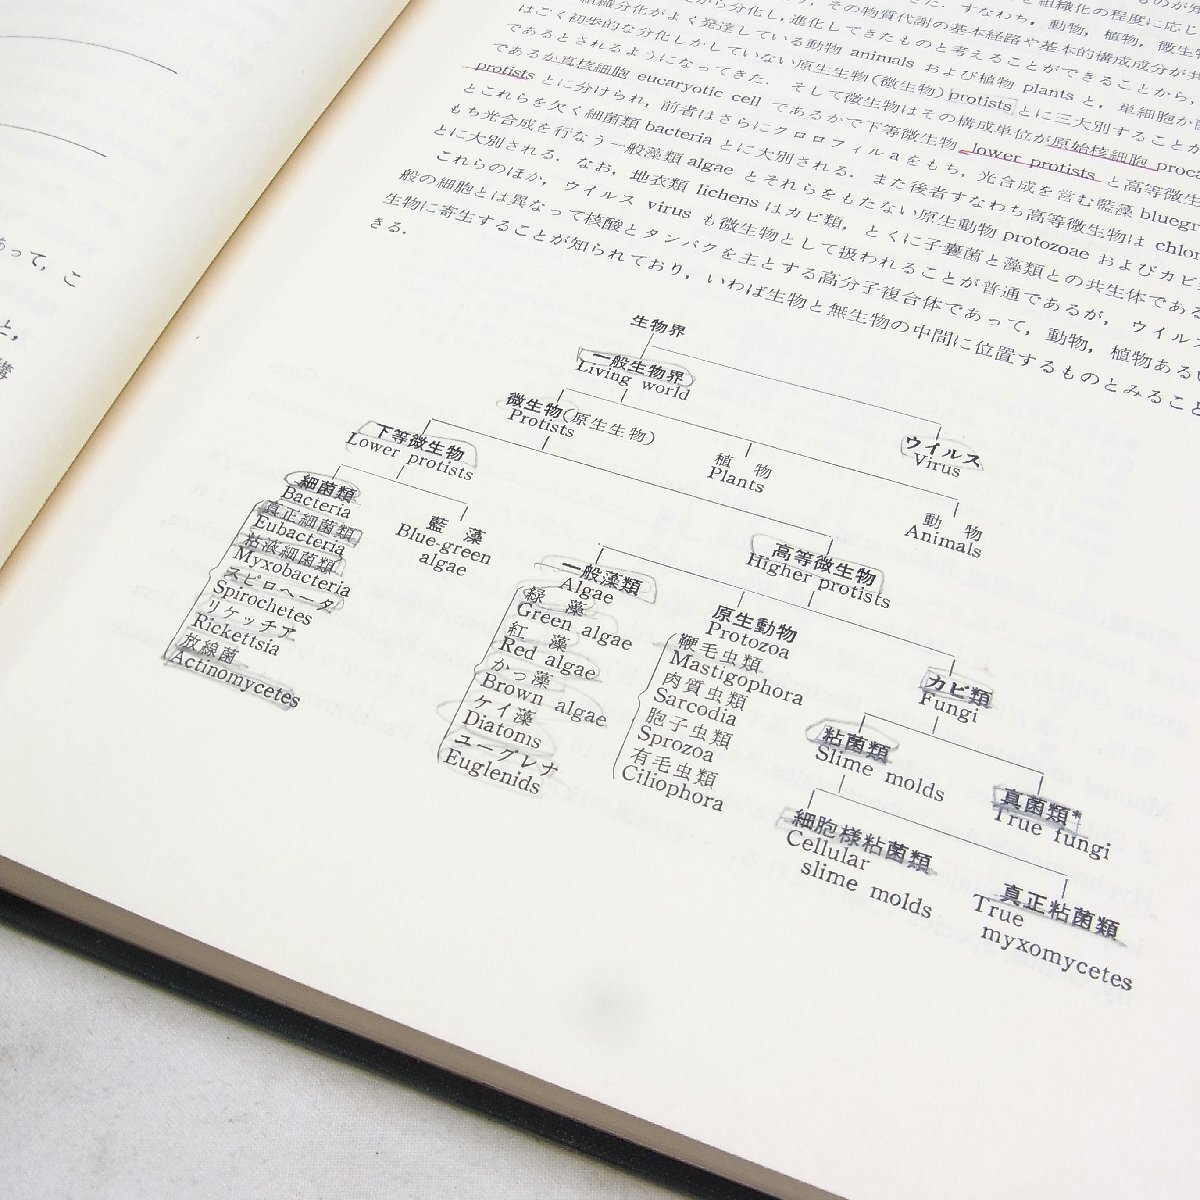 あって，こ
と，
組織分化がよく発達している動物 animals および植物 plants と，単細胞か
はごく初歩的な分化しかしていない原生生物(微生物) protists とに三大別すること
であるとされるようになってきた．そして微生物はその構成単位が原始核細胞
であるか真核細胞 eucaryotic cell であるかで下等微生物 lower protists と高等微生
protists とに分けられ，前者はさらにクロロフィル a をもち，光合成を営む藍藻
とこれらを欠く細菌類 bacteria とに大別される．また後者すなわち高等微生物は
もち光合成を行なう一般藻類 algae とそれらをもたない原生動物 protozoae およびカビ
とに大別される．なお，地衣類 lichens はカビ類，とくに子嚢菌と藻類との共生体である
これらのほか，ウイルス virus も微生物として扱われることが普通であるが，ウイルス
般の細胞とは異なって核酸とタンパクを主とする高分子複合体であって，動物，植物あるい
生物に寄生することが知られており，いわば生物と無生物の中間に位置するものとみること
きる．
生物界
一般生物界
Living world
ウイルス
Virus
微生物(原生生物)
Protists
植 物
Plants
動 物
Animals
下等微生物
Lower protists
高等微生物
Higher protists
細菌類
Bacteria
真正細菌類
Eubacteria
粘液細菌類
Myxobacteria
スピロヘータ
Spirochetes
リケッチア
Rickettsia
放線菌
Actinomycetes
藍 藻
Blue-green
algae
一般藻類
Algae
緑 藻
Green algae
紅 藻
Red algae
かっ藻
Brown algae
ケイ藻
Diatoms
ユーグレナ
Euglenids
原生動物
Protozoa
鞭毛虫類
Mastigophora
肉質虫類
Sarcodia
胞子虫類
Sprozoa
有毛虫類
Ciliophora
カビ類
Fungi
粘菌類
Slime molds
真菌類*
True fungi
細胞様粘菌類
Cellular
slime molds
真正粘菌類
True
myxomycetes